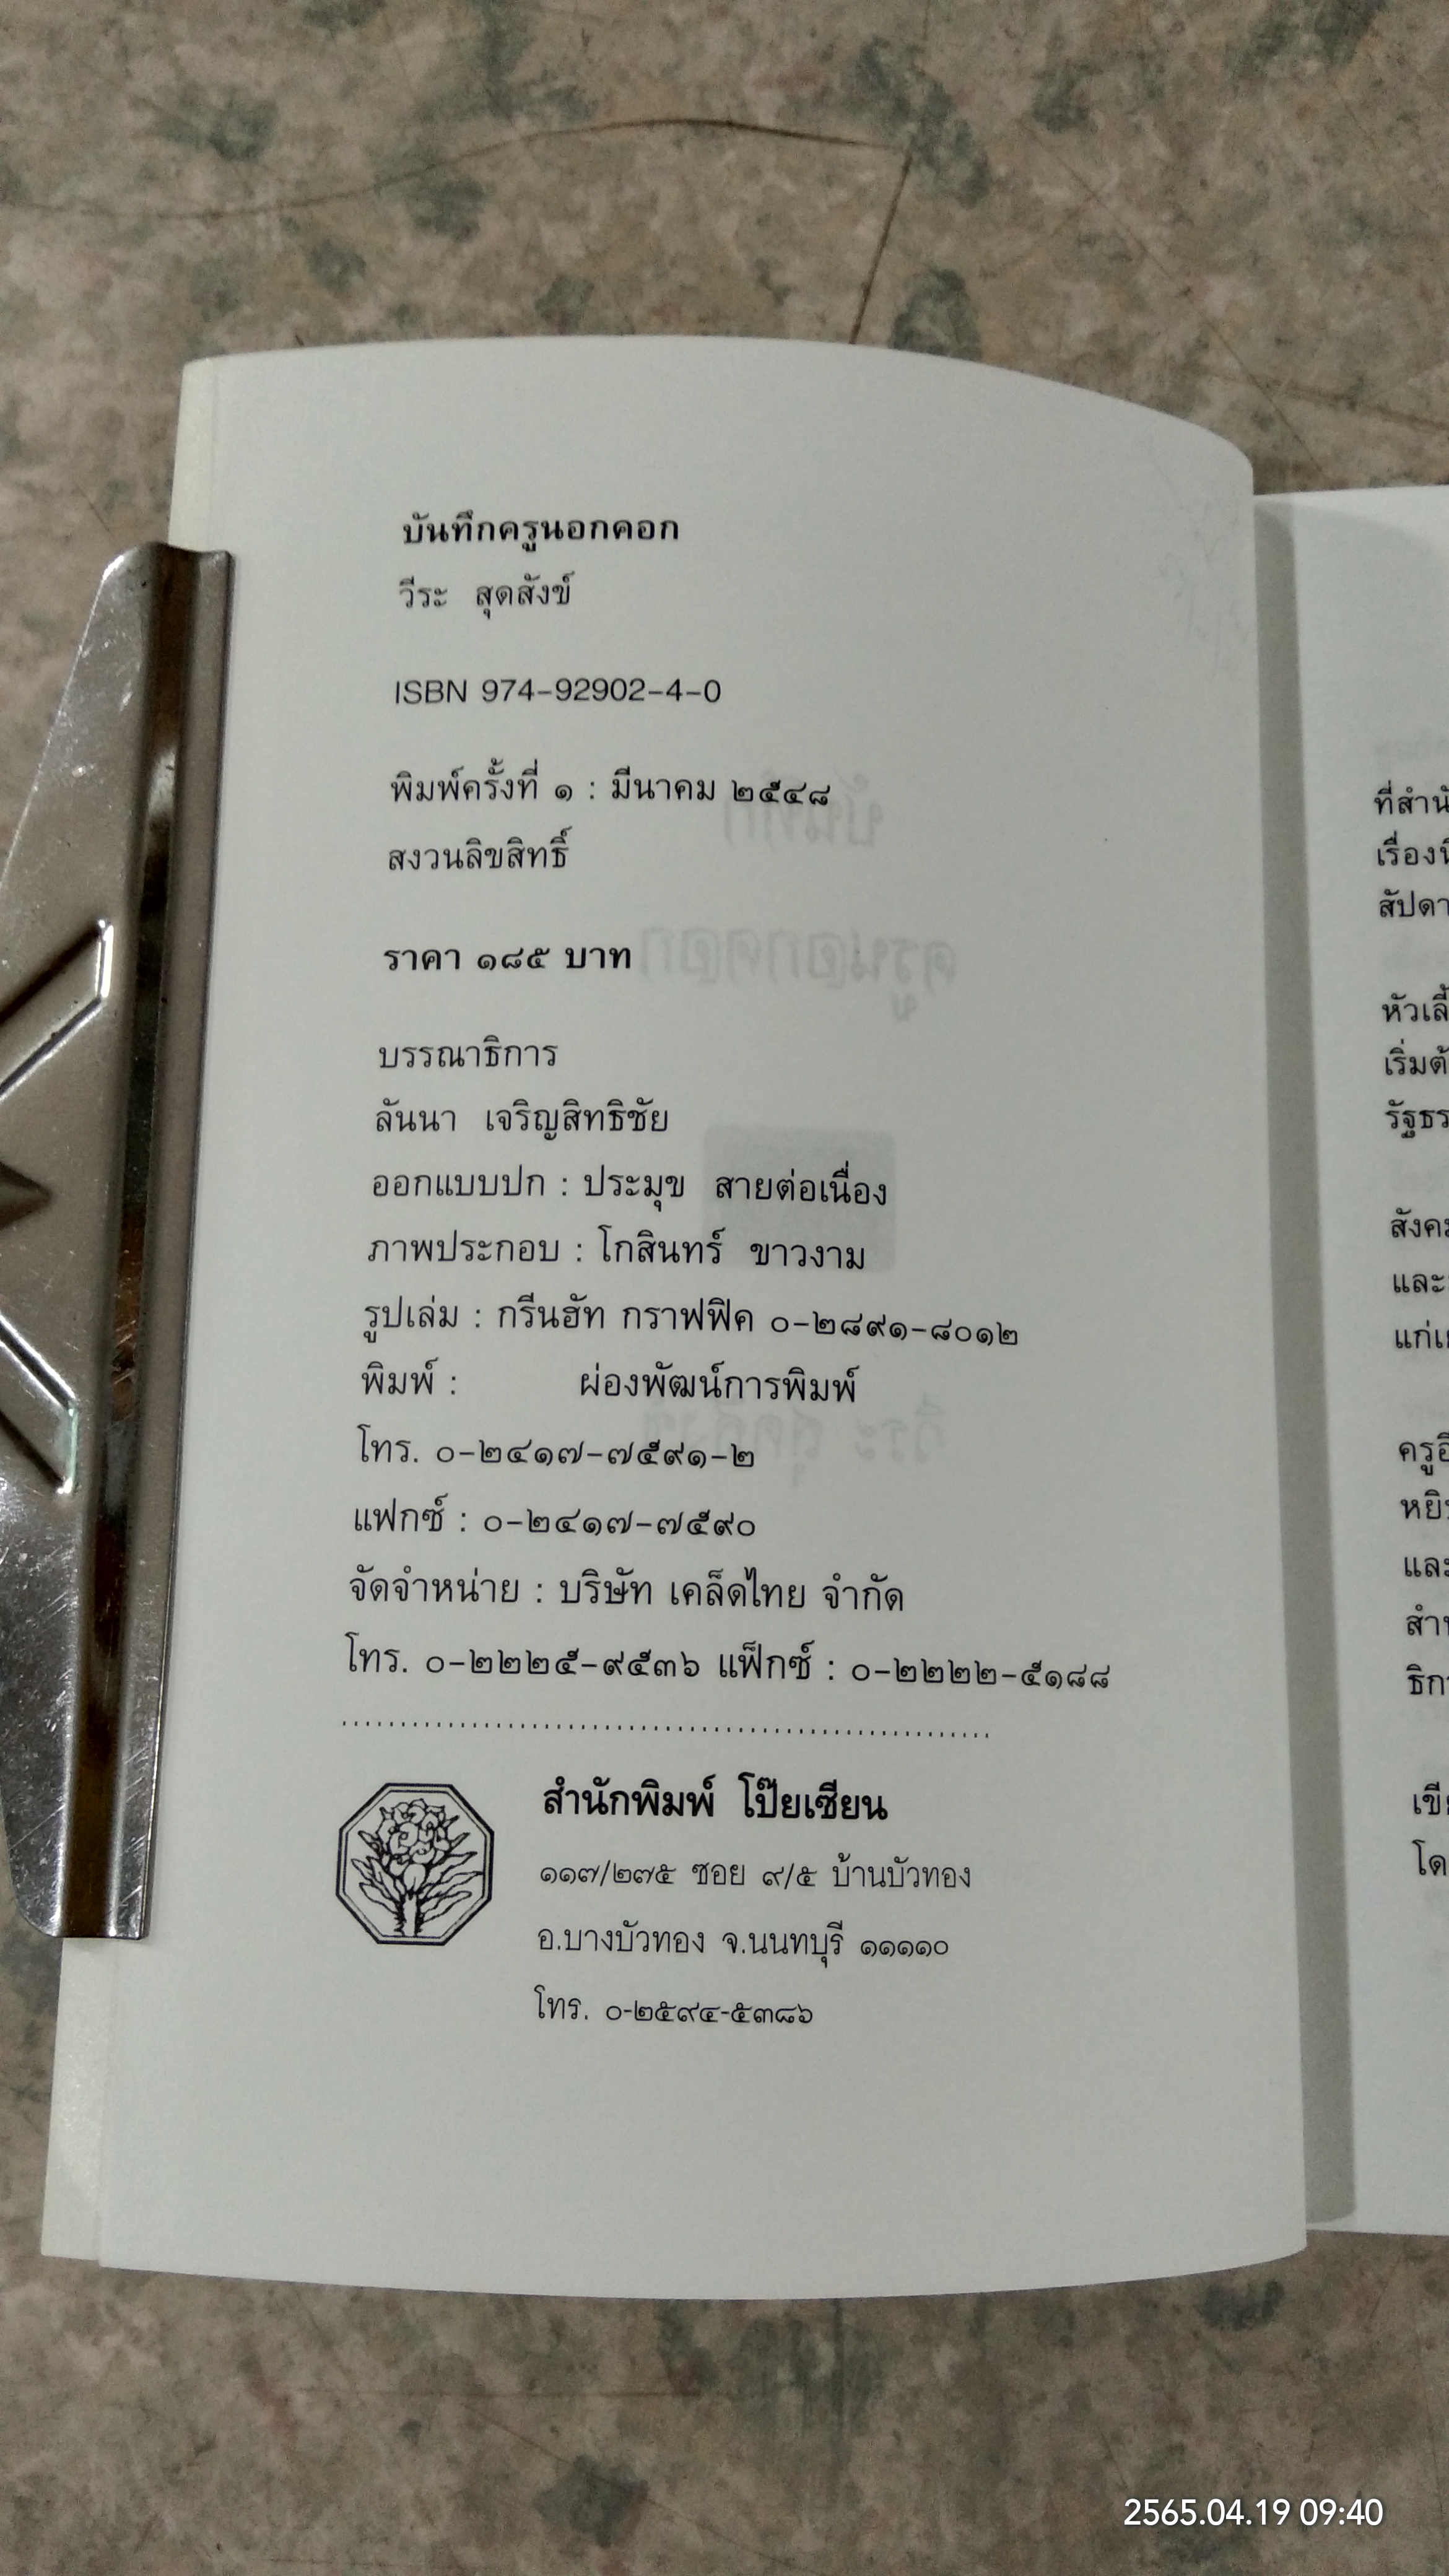 บันทึกครูนอกคอก
วีระ สุดสังข์
ISBN 974-92902-4-0
พิมพ์ครั้งที่ ๑ : มีนาคม ๒๕๔๘
สงวนลิขสิทธิ์
ราคา ๑๘๕ บาท
บรรณาธิการ
ลันนา เจริญสิทธิชัย
ออกแบบปก : ประมุข สายต่อเนื่อง
ภาพประกอบ : โกสินทร์ ขาวงาม
รูปเล่ม : กรีนฮัท กราฟฟิค ๐-๒๘๙๑-๘๐๑๒
พิมพ์ : ผ่องพัฒน์การพิมพ์
โทร. ๐-๒๔๑๗-๗๕๙๑-๒
แฟกซ์ : ๐-๒๔๑๗-๗๕๙๐
จัดจำหน่าย : บริษัท เคล็ดไทย จำกัด
โทร. ๐-๒๒๒๕-๙๕๓๖ แฟ็กซ์ : ๐-๒๒๒๒-๕๑๘๘
สำนักพิมพ์ โป๊ยเซียน
๑๑๗/๒๗๕ ซอย ๙/๕ บ้านบัวทอง
อ.บางบัวทอง จ.นนทบุรี ๑๑๑๑๐
โทร. ๐-๒๕๙๔-๕๓๘๖
ที่สำนั
เรื่อง
สัปดา
หัวเลี้
เริ่มต้
รัฐธร
สังค
และ
แก่
ครูอี
หยิ
และ
สำ
ธิก
เขี
โด
2565.04.19 09:40